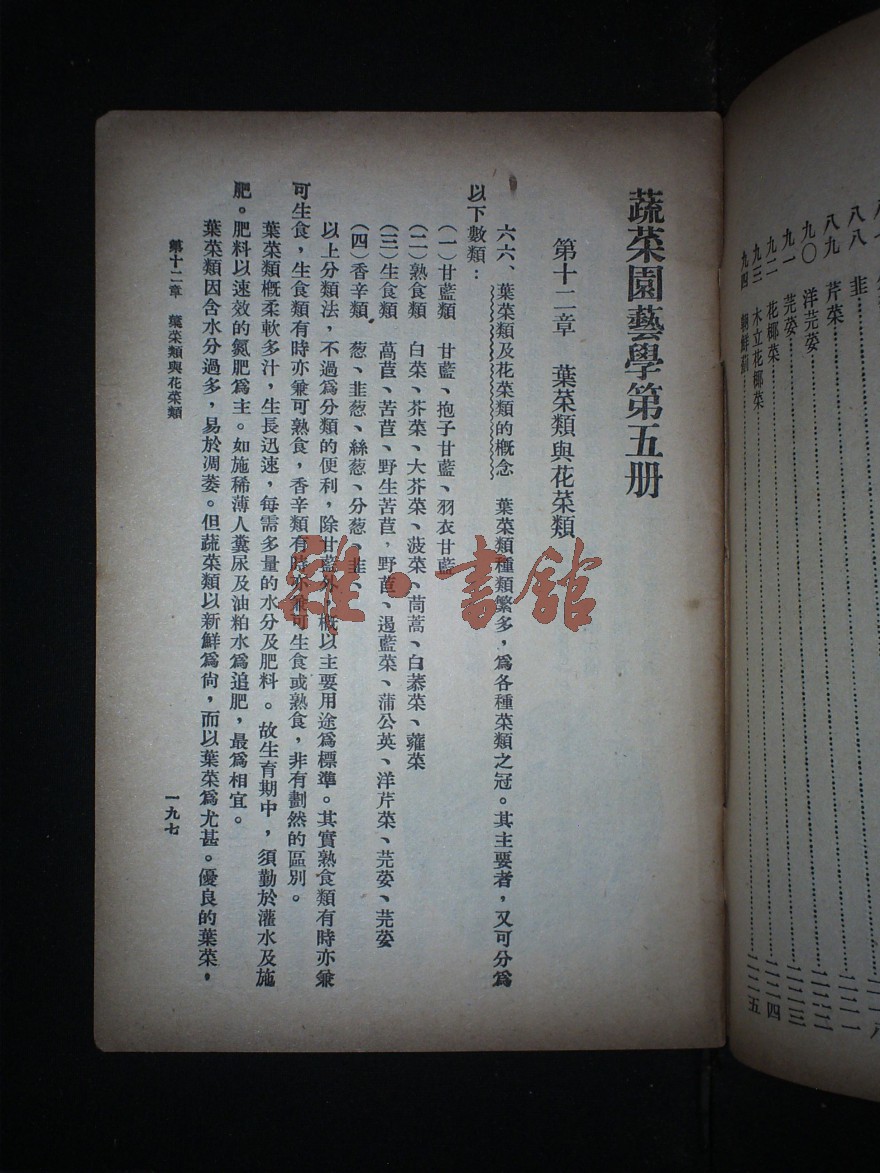 蔬菜園藝學第五册
第十二章　葉菜類與花菜類
六六、葉菜類及花菜類的概念　葉菜類種類繁多，爲各種菜類之冠。其主要者，又可分爲
以下數類：
(一)甘藍類　甘藍、抱子甘藍、羽衣甘藍
(二)熟食類　白菜、芥菜、大芥菜、菠菜、茼蒿、白菾菜、蕹菜
(三)生食類　萵苣、苦苣、野生苦苣，野苣、遏藍菜、蒲公英、洋芹菜、芫荽、芫荽
(四)香辛類　葱、韭葱、絲葱、分葱、韭、
以上分類法，不過爲分類的便利，除甘藍外，概以主要用途爲標準。其實熟食類有時亦兼
可生食，生食類有時亦兼可熟食，香辛類有時亦兼可生食或熟食，非有劃然的區別。
葉菜類概柔軟多汁，生長迅速，每需多量的水分及肥料。故生育期中，須勤於灌水及施
肥。肥料以速效的氮肥爲主。如施稀薄人糞尿及油粕水爲追肥，最爲相宜。
葉菜類因含水分過多，易於凋萎。但蔬菜類以新鮮爲尙，而以葉菜爲尤甚。優良的葉菜，
第十二章　葉菜類與花菜類
一九七
雜·書館
八八　韭……二二一
八九　芹菜……二二二
九〇　洋芫荽……二二二
九一　芫荽……二二三
九二　花椰菜……二二四
九三　木立花椰菜
九四　朝鮮薊……二二五